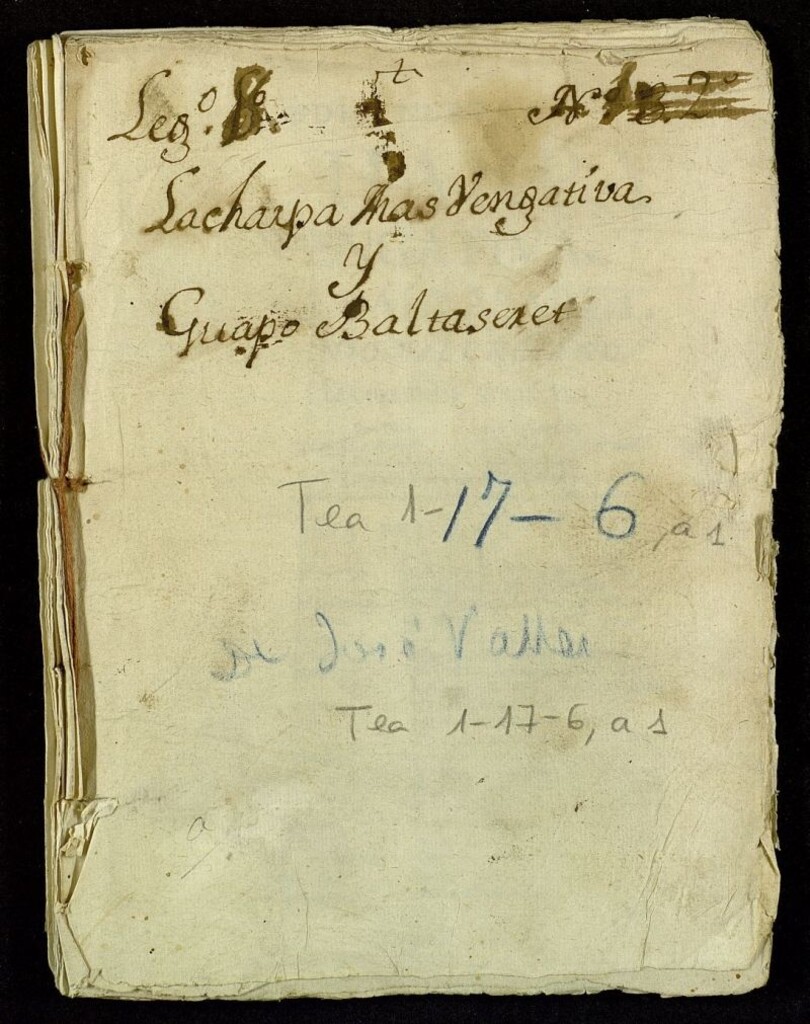 Leg.º t Nº
Lacharpa Mas Vengativa
Y
Guapo Baltaseret
Tea 1-17-6, a 1
de José Valles
Tea 1-17-6, a 1
a